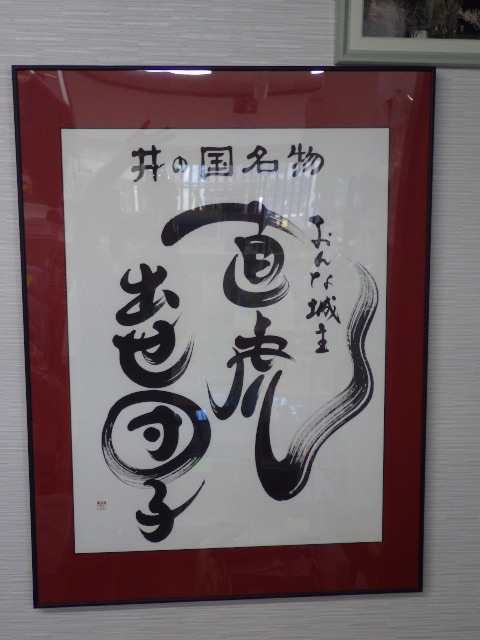 井の国名物
おんな城主
直虎
出世団子